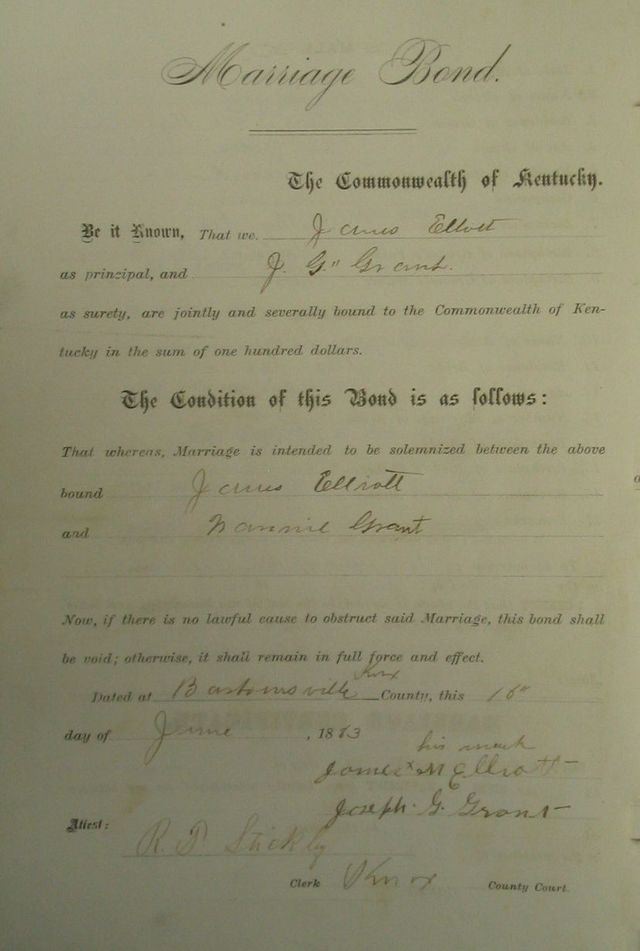 Marriage Bond.
The Commonwealth of Kentucky.
Be it Known, That we. James Elliott
as principal, and J. G. Grant.
as surety, are jointly and severally bound to the Commonwealth of Ken-
tucky in the sum of one hundred dollars.
The Condition of this Bond is as follows:
That whereas, Marriage is intended to be solemnized between the above
bound James Elliott
and Nannie Grant
Now, if there is no lawful cause to obstruct said Marriage, this bond shall
be void; otherwise, it shall remain in full force and effect.
Knox
Dated at County, this 16"
day of June, 1883
his mark
James x M Elliott
Joseph. G. Grant
Attest:
R. Stickly
Clerk Knox County Court.